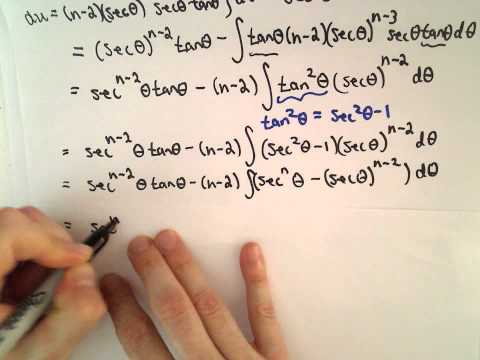 du = (n-2)(secθ) secθ tanθ
= (secθ)^{n-2} tanθ - ∫ tanθ (n-2)(secθ)^{n-3} secθ tanθ dθ
= sec^{n-2}θ tanθ - (n-2) ∫ tan²θ (secθ)^{n-2} dθ
tan²θ = sec²θ-1
= sec^{n-2}θ tanθ - (n-2) ∫ (sec²θ-1)(secθ)^{n-2} dθ
= sec^{n-2}θ tanθ - (n-2) ∫(secⁿθ - (secθ)^{n-2}) dθ
= sec